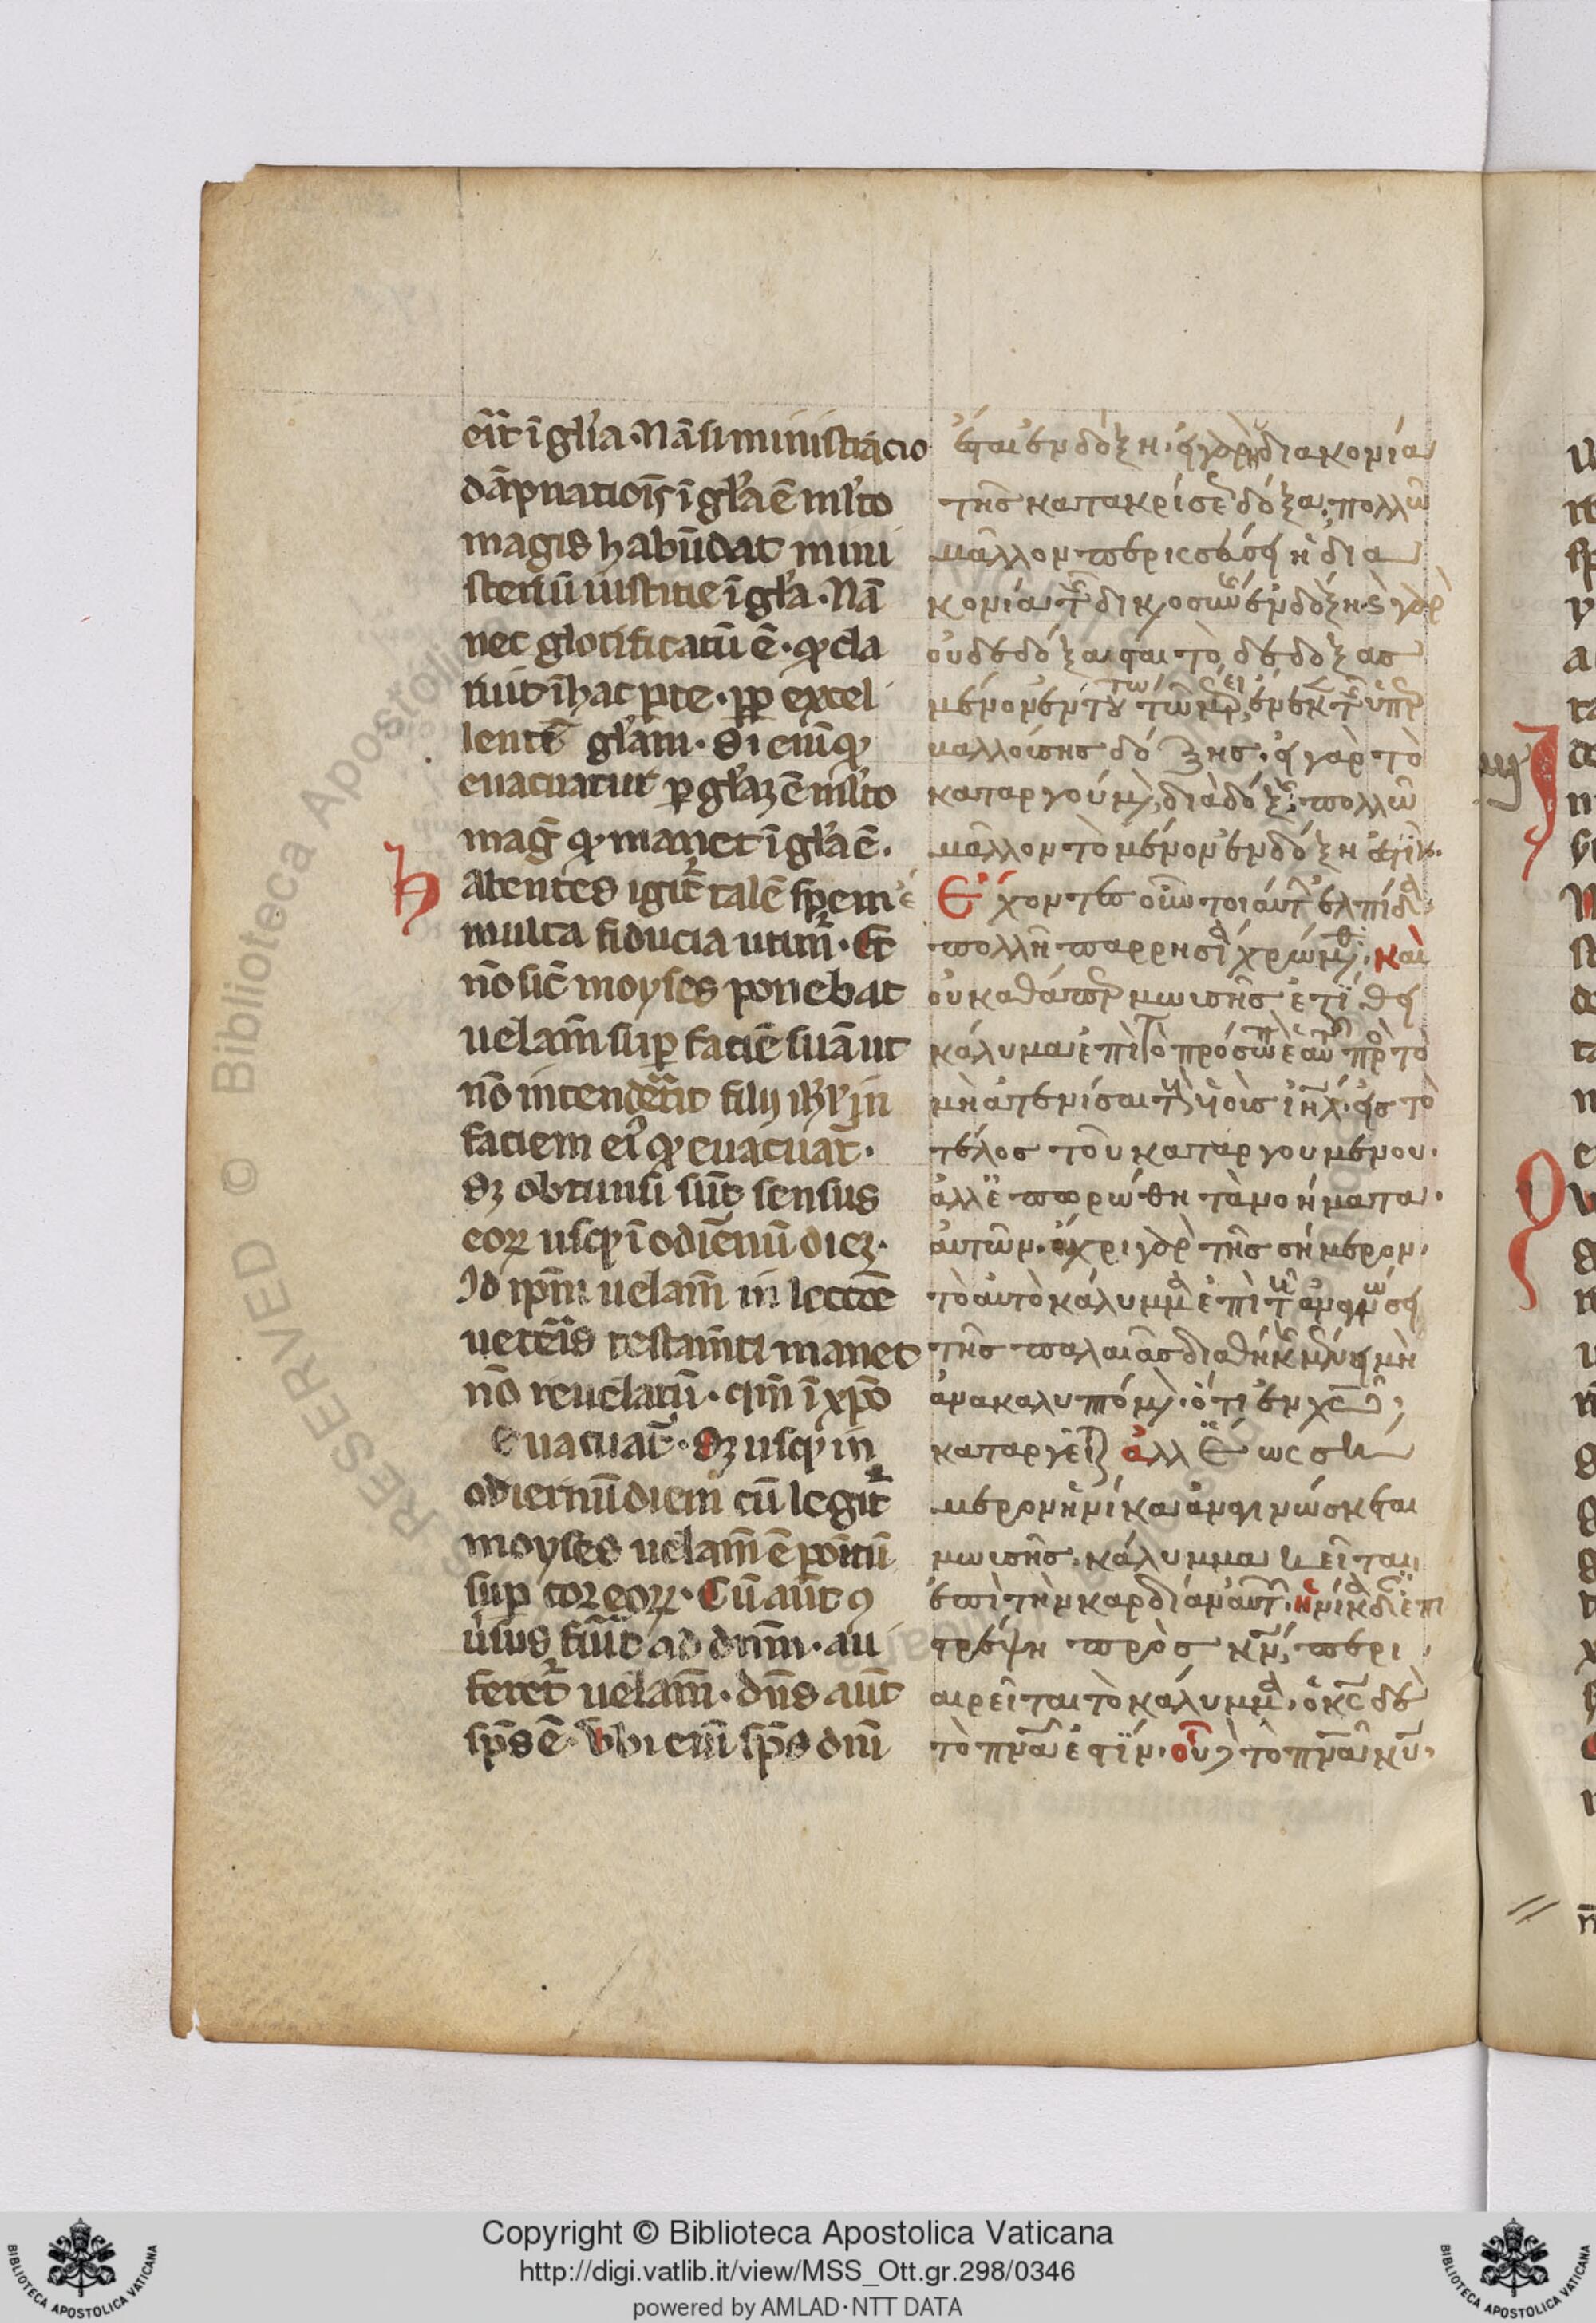 erit ī gl̄ia · Nā si ministracio
dāpnatiois ī gl̄a ē ml̄to
magis habūdat mini
steriū iustitie ī gl̄a · Nā
nec glorificatū ē · qͦ cla
ruit ī hac pte · ꝓp excel
lentē gl̄am · Si eni qͦ
euacuatur p gl̄aꝫ ē ml̄to
maḡ qͦ manet ī gl̄a ē ·
habentes igit̄ talē spem
multa fiducia utim̄ · Et
nō sic̄ moyses ponebat
uelam̄ sup faciē suā ut
nō intenderēt filij isr̄l in
faciem eiꝰ qͦ euacuat̄ ·
Sꝫ obtunsi sūt sensus
eoꝝ usqꝫ ī odiernū dieꝫ ·
Id ipm̄ uelam̄ in lectōe
ueteris testam̄ti manet
nō reuelatū · qm̄ ī xpō
euacuat̄ · Sꝫ usqꝫ in
odiernū diem cū legit̄
moyses uelam̄ ē positū
sup cor eoꝝ · Cū aut̄ ꝯ
uersus fuīt ad dn̄m · au
feret̄ uelam̄ · dn̄s aut̄
sp̄s ē · Vbi eni sp̄s dn̄i
ἔσται ἐν δόξη · εἰ γὰρ ἡ διακονία
τῆς κατακρίσε δόξα, πολλῶ
μᾶλλον περισσεύσει ἡ δια
κονία τῆς δικαιοσύνης ἐν δόξη · καὶ γὰρ
οὐδεδόξασται τὸ δεδοξασ
μένον ἐν τούτω τῶ μέρει, ἕνεκεν τῆς ὑπερ
βαλλούσης δόξης · εἰ γὰρ τὸ
καταργούμενον, διὰ δόξης · πολλῶ
μᾶλλον τὸ μένον ἐν δόξη ἐστὶν ·
Ἔχοντες οὖν τοιαύτην ἐλπίδα,
πολλῆ παρρησία χρώμεθα · καὶ
οὐ καθάπερ μωισῆς ἐτίθει
κάλυμα ἐπὶ τὸ πρόσωπον ἑαυτοῦ πρὸς τὸ
μὴ ἀτενίσαι τοὺς υἱοὺς ἰηλ · εἰς τὸ
τέλος τοῦ καταργουμένου ·
ἀλλ ἐπωρώθη τὰ νοήματα ·
αὐτῶν · ἄχρι γὰρ τῆς σήμερον,
τὸ αὐτὸ κάλυμμα ἐπὶ τῆ ἀναγνώσει
τῆς παλαιᾶς διαθήκης μένει μὴ
ἀνακαλυπτόμενον · ὅτι ἐν χω
καταργεῖται ἀλλ Ἕως σή
μερον ἡνίκα ἀναγινώσκεται
μωισῆς, κάλυμμα κεῖται
ἐπὶ τὴν καρδίαν αὐτῶν · ἡνίκα δ ἂν ἐπι
τρέψη πρὸς κν, περι
αιρεῖται τὸ κάλυμμα · ὁ κς δὲ
τὸ πνα ἐστϊν · οὗ δὲ τὸ πνα κυ,
Copyright © Biblioteca Apostolica Vaticana
http://digi.vatlib.it/view/MSS_Ott.gr.298/0346
powered by AMLAD·NTT DATA